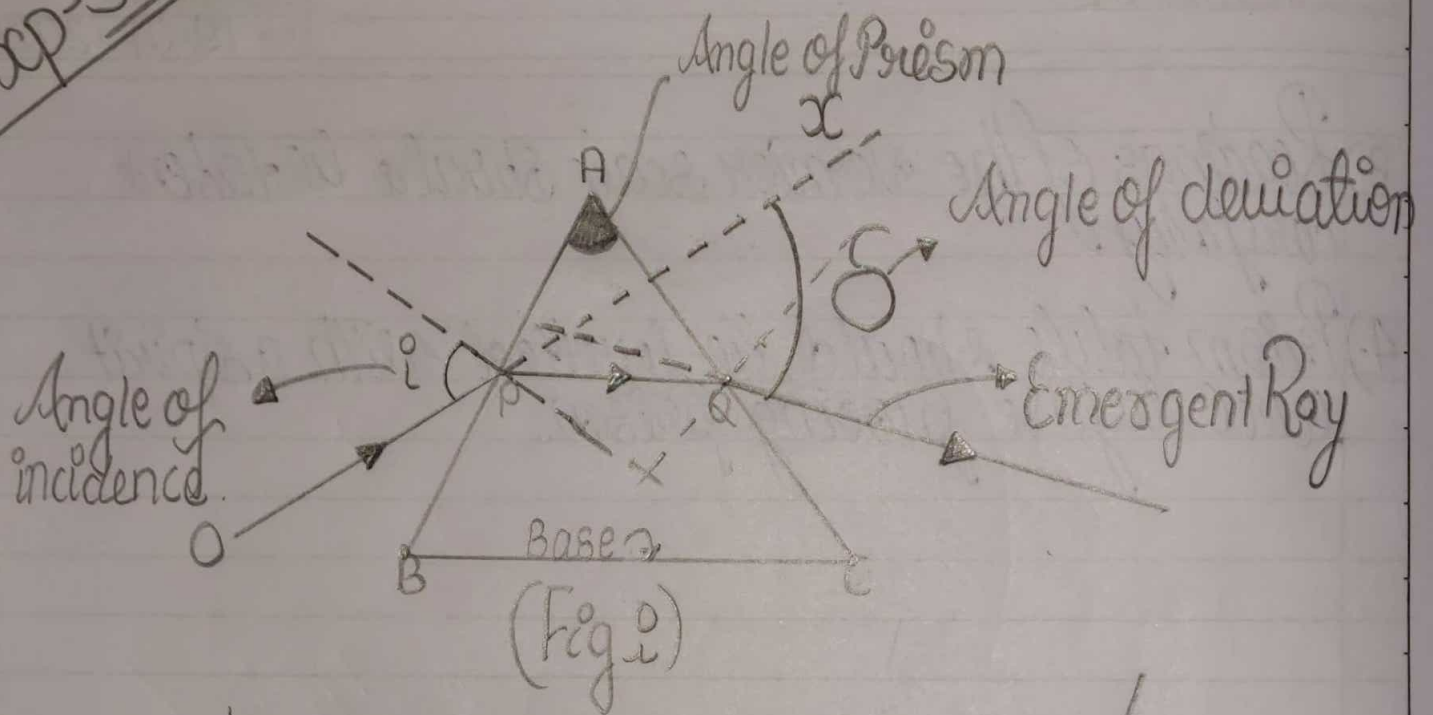 Angle of Prism
x
A
Angle of deviation
δ
i
Angle of
incidence.
P
Q
Emergent Ray
x
O
Base
B
C
(Fig i)